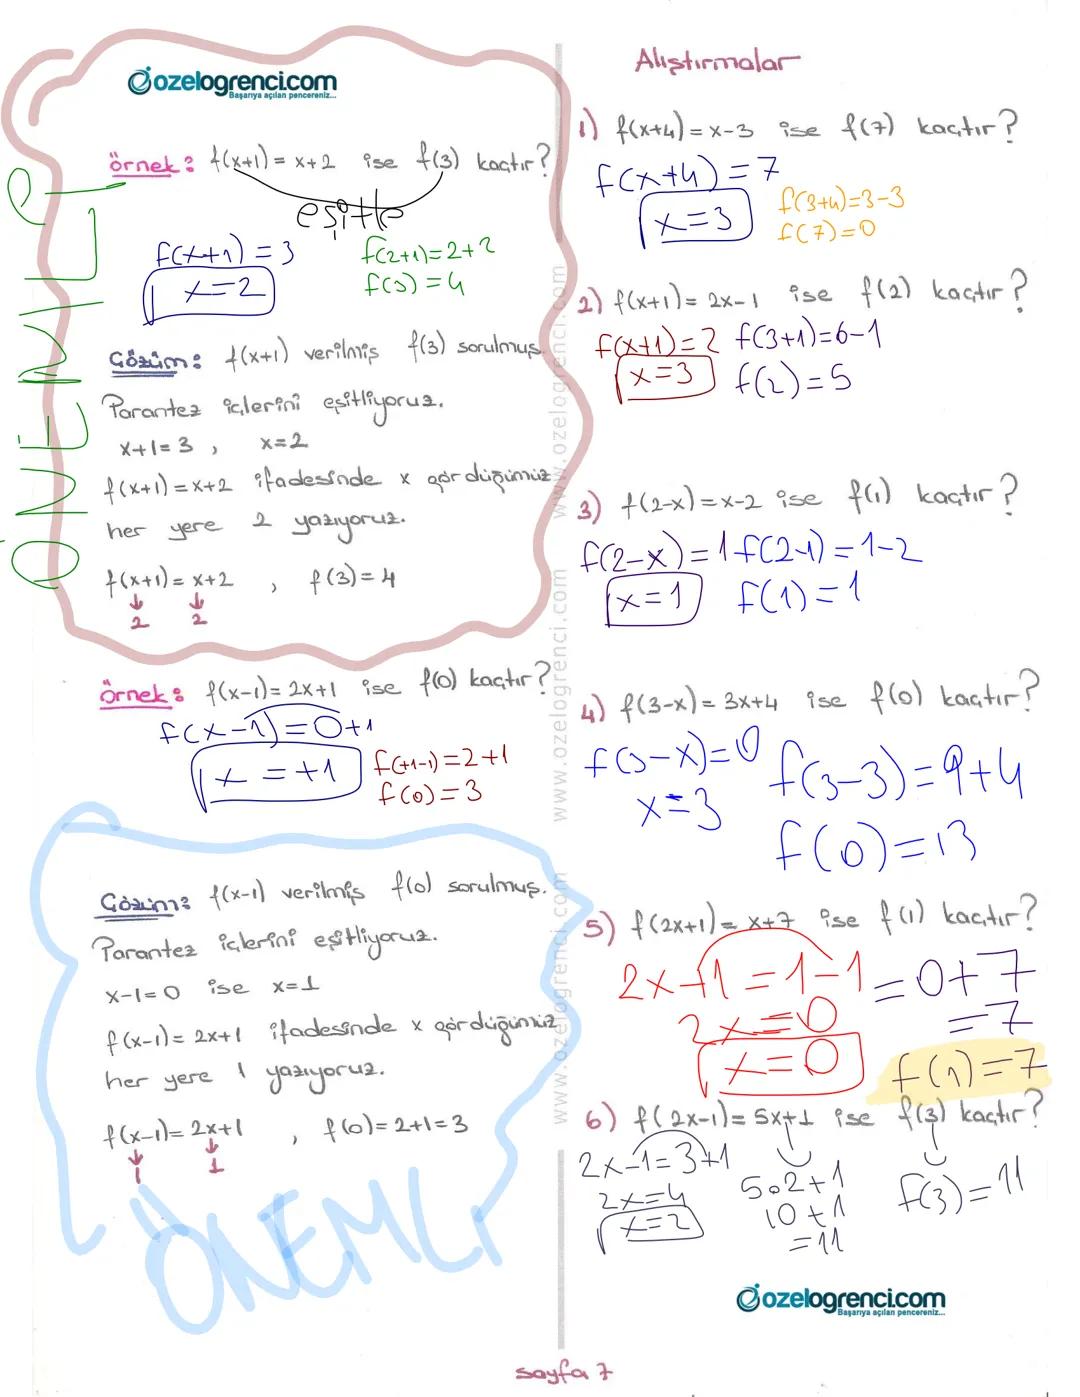 ozelogrenci.com
Başarıya açılan pencereniz...
ÖNEMLİ
örnek: f(x+1) = x+2 ise f(3) kaçtır?
eşitle
f(x+1) = 3
x=2
f(2+1)=2+2
f(3) = 4
Çözüm: f(x+1) verilmiş f(3) sorulmuş.
Parantez içlerini eşitliyoruz.
x+1=3 , x=2
f(x+1)=x+2 ifadesinde x gördüğümüz
her yere 2 yazıyoruz.
f(x+1)= x+2 , f(3)=4
2 2
örnek: f(x-1)= 2x+1 ise f(0) kaçtır?
f(x-1)=0+1
x = +1
f(+1-1)=2+1
f(0)=3
Çözüm: f(x-1) verilmiş f(0) sorulmuş.
Parantez içlerini eşitliyoruz.
x-1=0 ise x=1
f(x-1)= 2x+1 ifadesinde x gördüğümüz
her yere 1 yazıyoruz.
f(x-1)= 2x+1 , f(0)=2+1=3
1 1
ÖNEMLİ
www.ozelogrenci.com www.ozelogrenci.com www.ozelogrenci.com
Alıştırmalar
1) f(x+4)=x-3 ise f(7) kaçtır?
f(x+4)=7
x=3
f(3+4)=3-3
f(7)=0
2) f(x+1)= 2x-1 ise f(2) kaçtır?
f(x+1)=2
x=3
f(3+1)=6-1
f(2)=5
3) f(2-x)=x-2 ise f(1) kaçtır?
f(2-x)=1
x=1
f(2-1)=1-2
f(1)=1
4) f(3-x)= 3x+4 ise f(0) kaçtır?
f(3-x)=0
x=3
f(3-3)=9+4
f(0)=13
5) f(2x+1)= x+7 ise f(1) kaçtır?
2x+1=1-1
2x=0
x=0
=0+7
=7
f(1)=7
6) f(2x-1)= 5x+1 ise f(3) kaçtır?
2x-1=3+1
2x=4
x=2
5.2+1
10+1
=11
f(3)=11
ozelogrenci.com
Başarıya açılan pencereniz...
sayfa 7